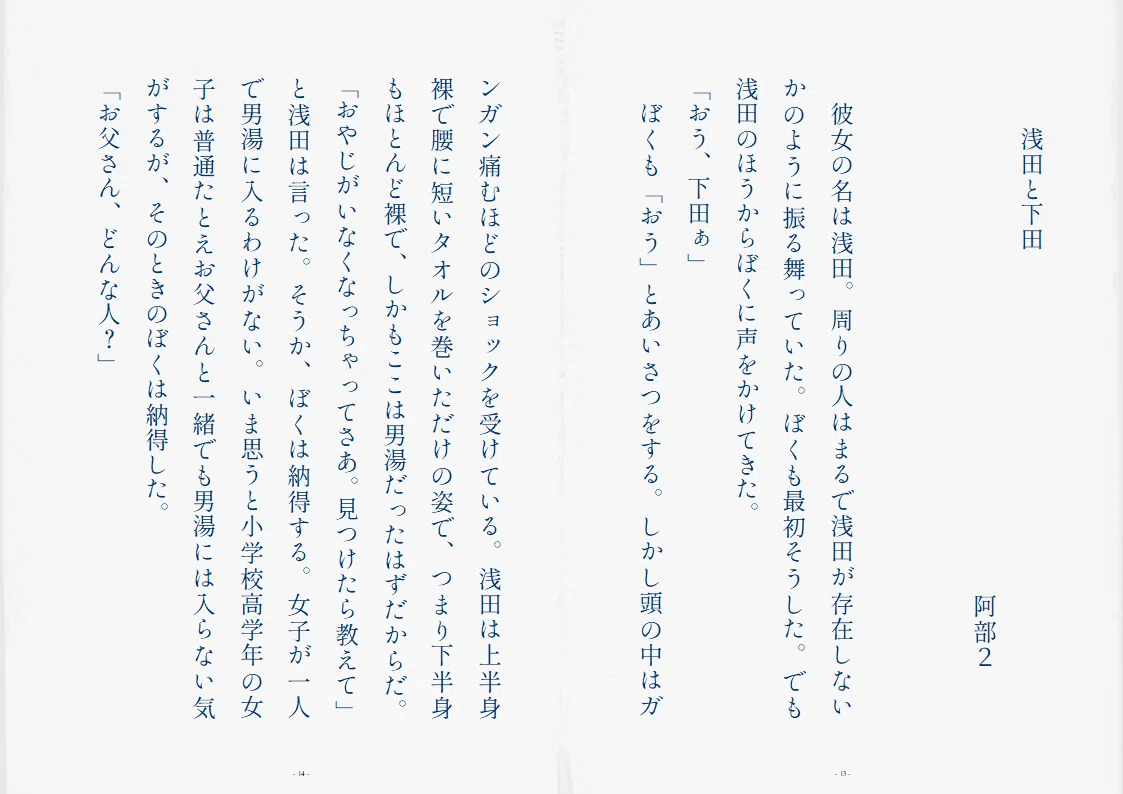 浅田と下田
阿部２
彼女の名は浅田。周りの人はまるで浅田が存在しない
かのように振る舞っていた。ぼくも最初そうした。でも
浅田のほうからぼくに声をかけてきた。
「おう、下田ぁ」
ぼくも「おう」とあいさつをする。しかし頭の中はガ
- 13 -
ンガン痛むほどのショックを受けている。浅田は上半身
裸で腰に短いタオルを巻いただけの姿で、つまり下半身
もほとんど裸で、しかもここは男湯だったはずだからだ。
「おやじがいなくなっちゃってさあ。見つけたら教えて」
と浅田は言った。そうか、ぼくは納得する。女子が一人
で男湯に入るわけがない。いま思うと小学校高学年の女
子は普通たとえお父さんと一緒でも男湯には入らない気
がするが、そのときのぼくは納得した。
「お父さん、どんな人？」
- 14 -